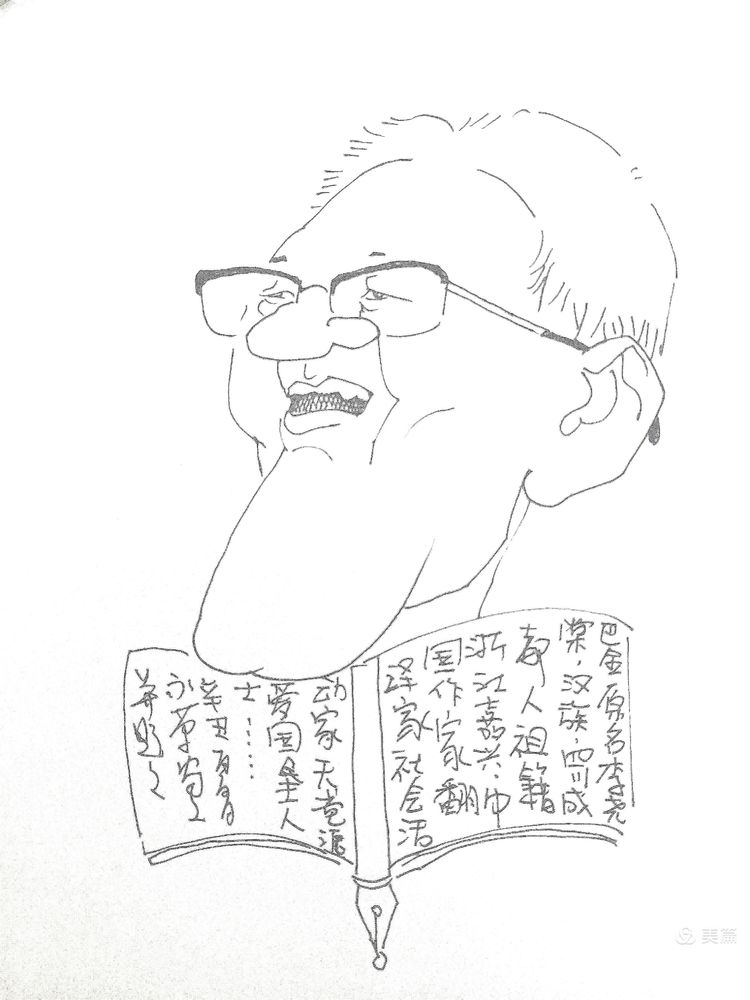 巴金原名李尧
棠，汉族，四川成
都人祖籍
浙江嘉兴，中
国作家翻
译家社会活
动家无党派
爱国民主人
士……
辛丑
并题之
美篇